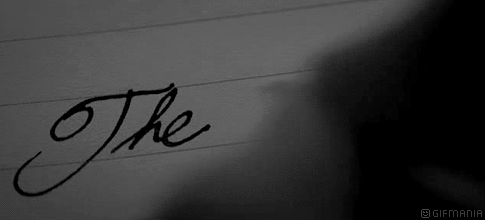 The
GIFMANIA